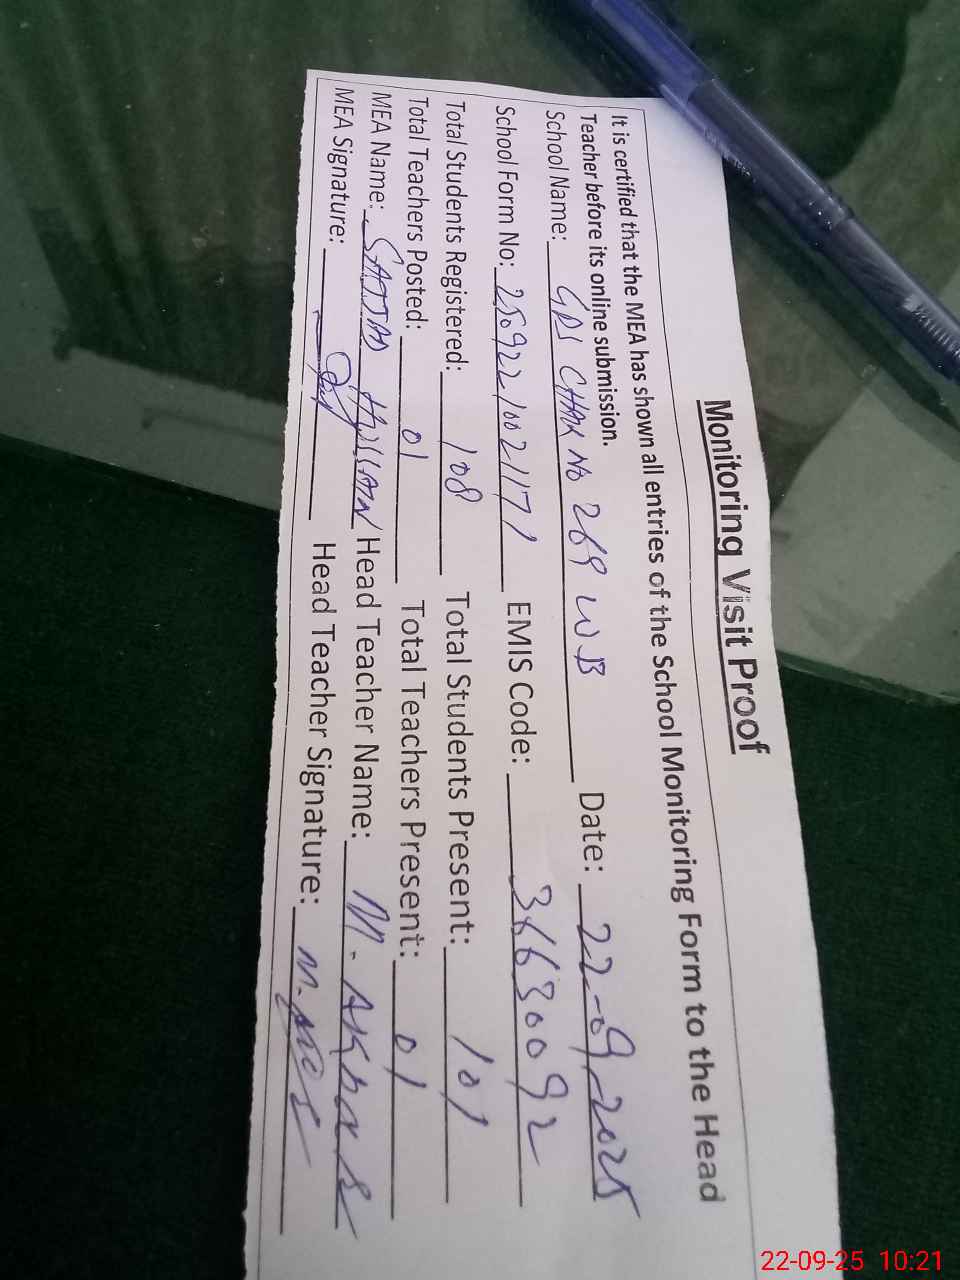 Monitoring Visit Proof
It is certified that the MEA has shown all entries of the School Monitoring Form to the Head
Teacher before its online submission.
School Name: GPS CHAK No 269 WB Date: 22-09-2025
School Form No: 25092210021171 EMIS Code: 36630092
Total Students Registered: 108 Total Students Present: 101
Total Teachers Posted: 01 Total Teachers Present: 01
MEA Name: SAJJAD HUSSAIN Head Teacher Name: M.
MEA Signature: Head Teacher Signature:
22-09-25 10:21